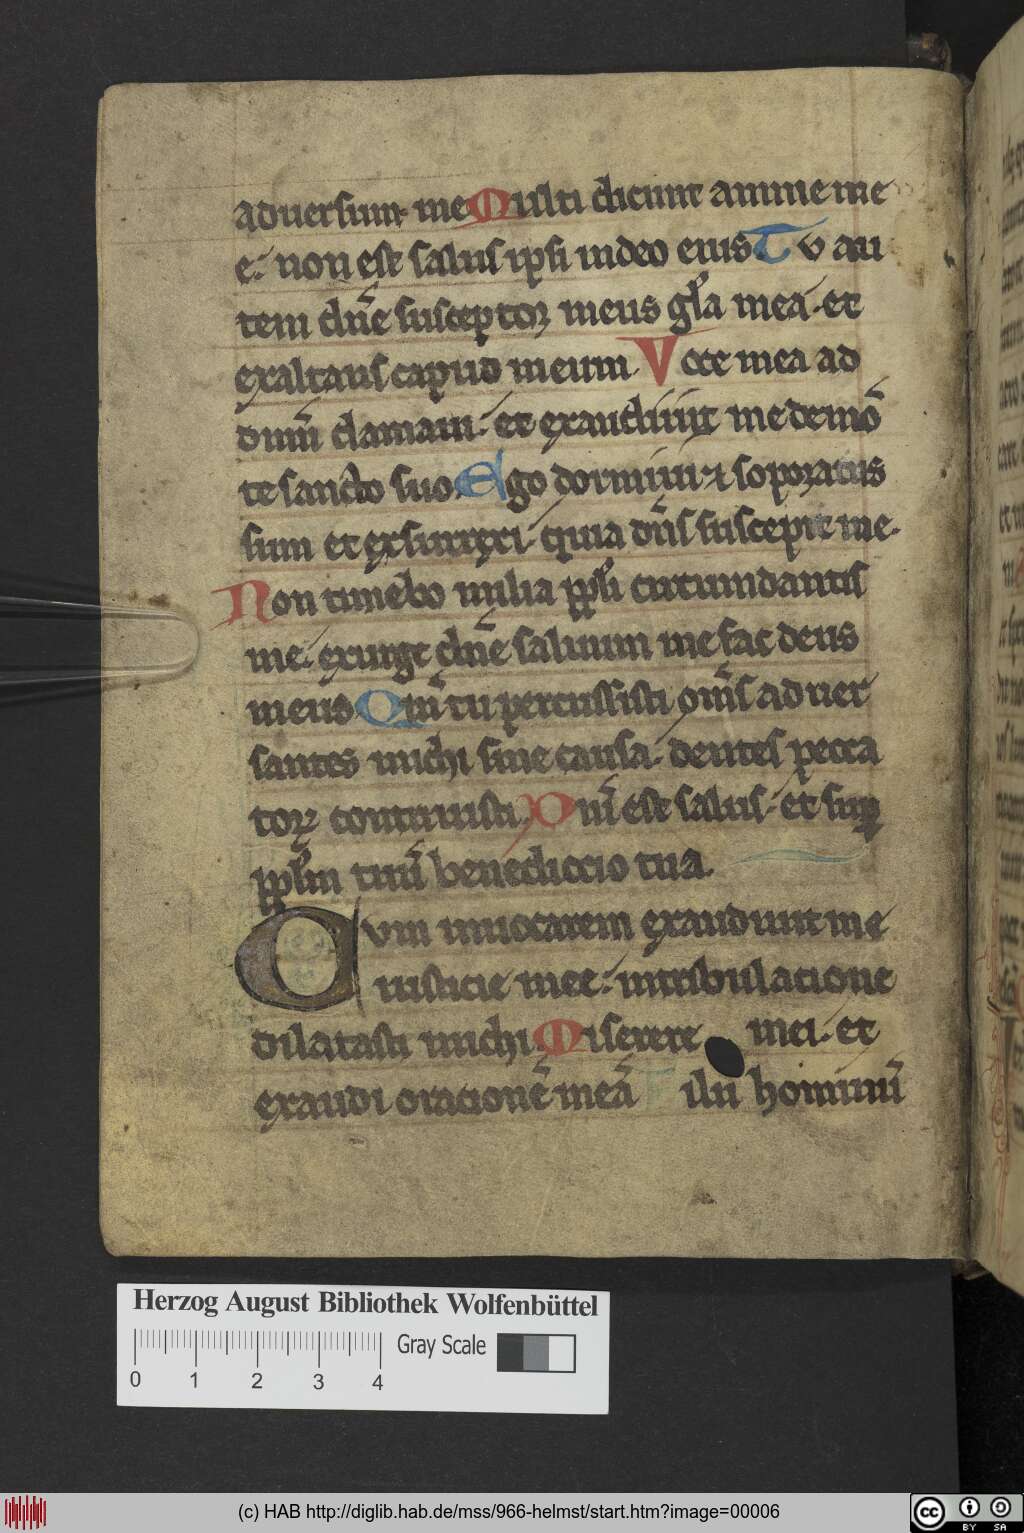 aduersum me Multi dicunt anime me
e. non est salus ipsi in deo eius Tu au
tem dn̄e susceptor meus gl̄a mea. et
exaltans capud meum. Voce mea ad
dnm̄ clamaui. et exaudiuit me de mō
te sancto suo. Ego dormiui ⁊ soporatus
sum et exsurrexi. quia dn̄s suscepit me.
Non timebo milia ppl̄i circumdantis
me. exurge dn̄e saluum me fac deus
meus Qm̄ tu percussisti om̄s aduer
santes michi sine causa. dentes pecca
toꝝ contriuisti. Dn̄i est salus. et sup̲
ppl̄m tuū benediccio tua.
Cum inuocarem exaudiuit me
iusticie mee. in tribulatione
dilatasti michi. Miserere mei. et
exaudi orationē meā Filii hominū
Herzog August Bibliothek Wolfenbüttel
Gray Scale
0 1 2 3 4
(c) HAB http://diglib.hab.de/mss/966-helmst/start.htm?image=00006
cc BY SA